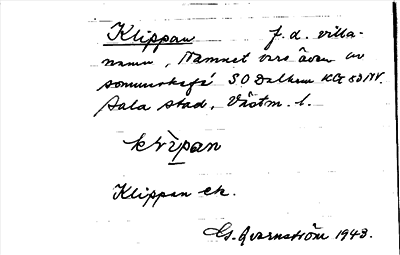 Klippan f. d. villa-
namn, Namnet vars även av
sommarkafé SO Dalhem KG SONV.
Sala stad, Västm. l.
klìpan
Klippan ek.
G. Qvarnström 1943.